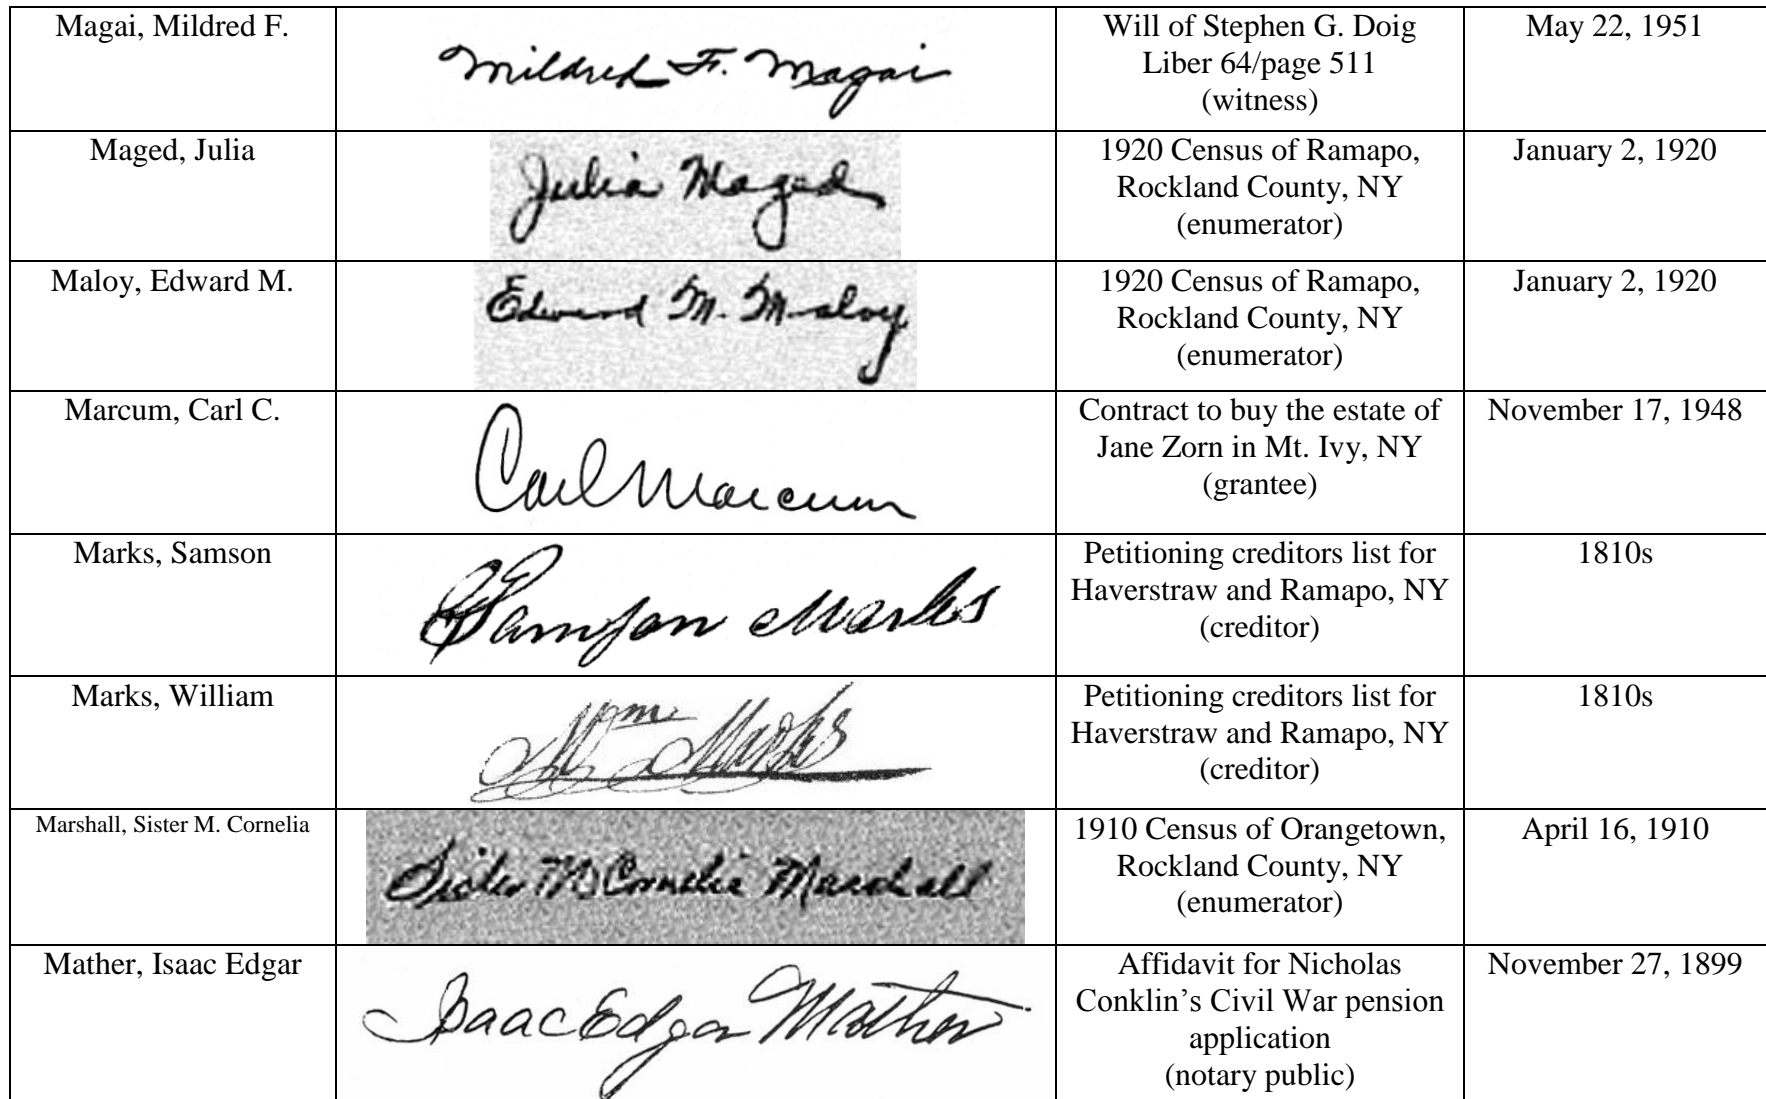 Magai, Mildred F.
Mildred F. Magai
Will of Stephen G. Doig
Liber 64/page 511
(witness)
May 22, 1951
Maged, Julia
Julia Maged
1920 Census of Ramapo,
Rockland County, NY
(enumerator)
January 2, 1920
Maloy, Edward M.
Edward M. Maloy
1920 Census of Ramapo,
Rockland County, NY
(enumerator)
January 2, 1920
Marcum, Carl C.
Carl Marcum
Contract to buy the estate of
Jane Zorn in Mt. Ivy, NY
(grantee)
November 17, 1948
Marks, Samson
Samson Marks
Petitioning creditors list for
Haverstraw and Ramapo, NY
(creditor)
1810s
Marks, William
Wm Marks
Petitioning creditors list for
Haverstraw and Ramapo, NY
(creditor)
1810s
Marshall, Sister M. Cornelia
Sister M Cornelia Marshall
1910 Census of Orangetown,
Rockland County, NY
(enumerator)
April 16, 1910
Mather, Isaac Edgar
Isaac Edgar Mather
Affidavit for Nicholas
Conklin’s Civil War pension
application
(notary public)
November 27, 1899